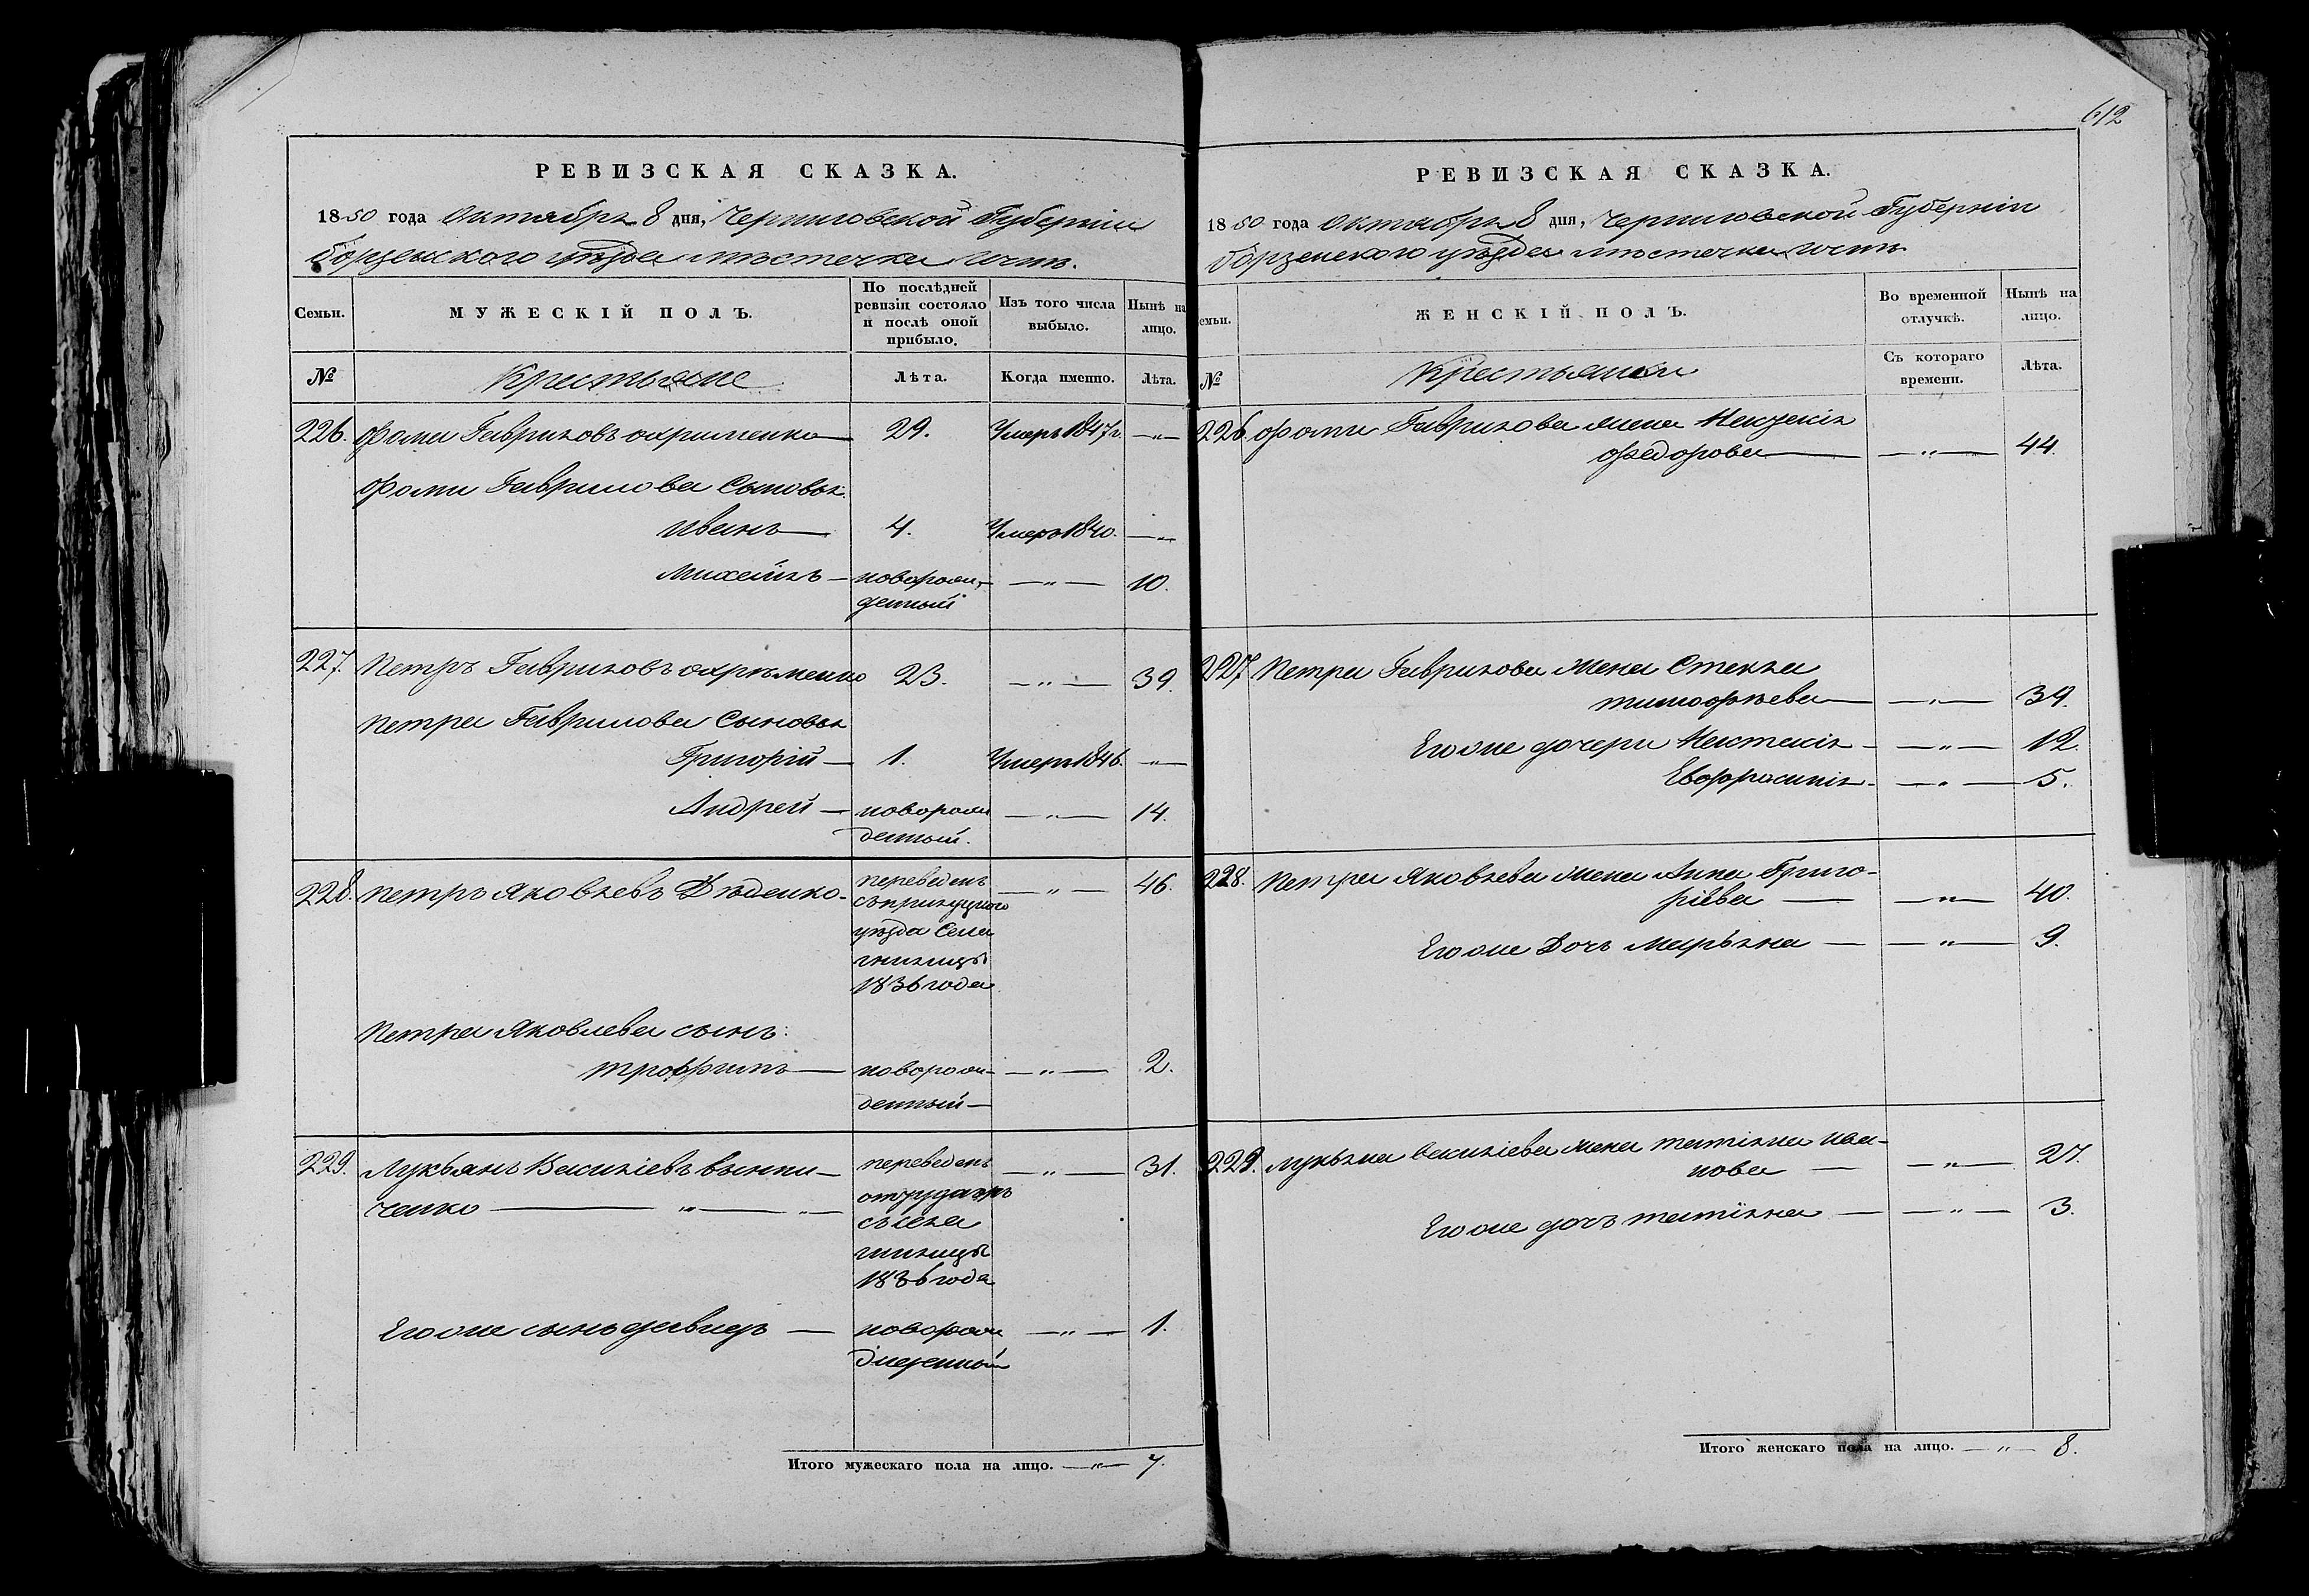 612
РЕВИЗСКАЯ СКАЗКА.
1850 года Октября 8 дня, Черниговской Губерніи
Борзенского уѣзда мѣстечка Ични.
Семьи.
МУЖЕСКІЙ ПОЛЪ.
По послѣдней ревизіи состояло и послѣ оной прибыло.
Изъ того числа выбыло.
Нынѣ на лицо.
№
Крестьяне
Лѣта.
Когда именно.
Лѣта.
226. Фома Гавриловъ Охрименко 29. Умеръ 1847г. —"—
Фомы Гаврилова Сыновья:
Иванъ 4. Умеръ 1840. —"—
Михайлъ новорож- —"— 10.
денный
227. Петръ Гавриловъ Охрѣменко 23. —"— 39.
Петра Гаврилова Сыновья
Григорій 1. Умеръ 1846. —"—
Андрей новорож —"— 14.
денный.
228. Петръ Яковлевъ Дѣденко переведенъ —"— 46.
съ прилуцкого
уѣзда Села
гнилицы
1836 года
Петра Яковлева сынъ:
Трофимъ новорож- —"— 2.
денный
229. Лукьянъ Василіевъ Винни- переведенъ —"— 31.
ченко —"—
съ села
гнилицы
1836 года
Его же сынъ давидъ новорож —"— 1.
Итого мужескаго пола на лицо. —"— 7.
РЕВИЗСКАЯ СКАЗКА.
1850 года Октября 8 дня, Черниговской Губерніи
Борзенского уѣзда мѣстечка Ични
семьи.
ЖЕНСКІЙ ПОЛЪ.
Во временной отлучкѣ.
Нынѣ на лицо.
№
Крестьянки
Съ котораго времени.
Лѣта.
226. Фомы Гаврилова жена
Федорова —"— 44.
227 Петра Гаврилова жена Стекла
тимофѣева —"— 39.
Его же дочери Настасія —"— 12.
Евфросинія —"— 5.
228. Петра Яковлева жена Анна Григо-
ріева —"— 40.
Его же Дочь Марьяна —"— 9.
229. Лукьяна Василіева жена татіяна ива-
нова —"— 27.
Его же дочь татіяна —"— 3.
Итого женскаго пола на лицо. —"— 8.